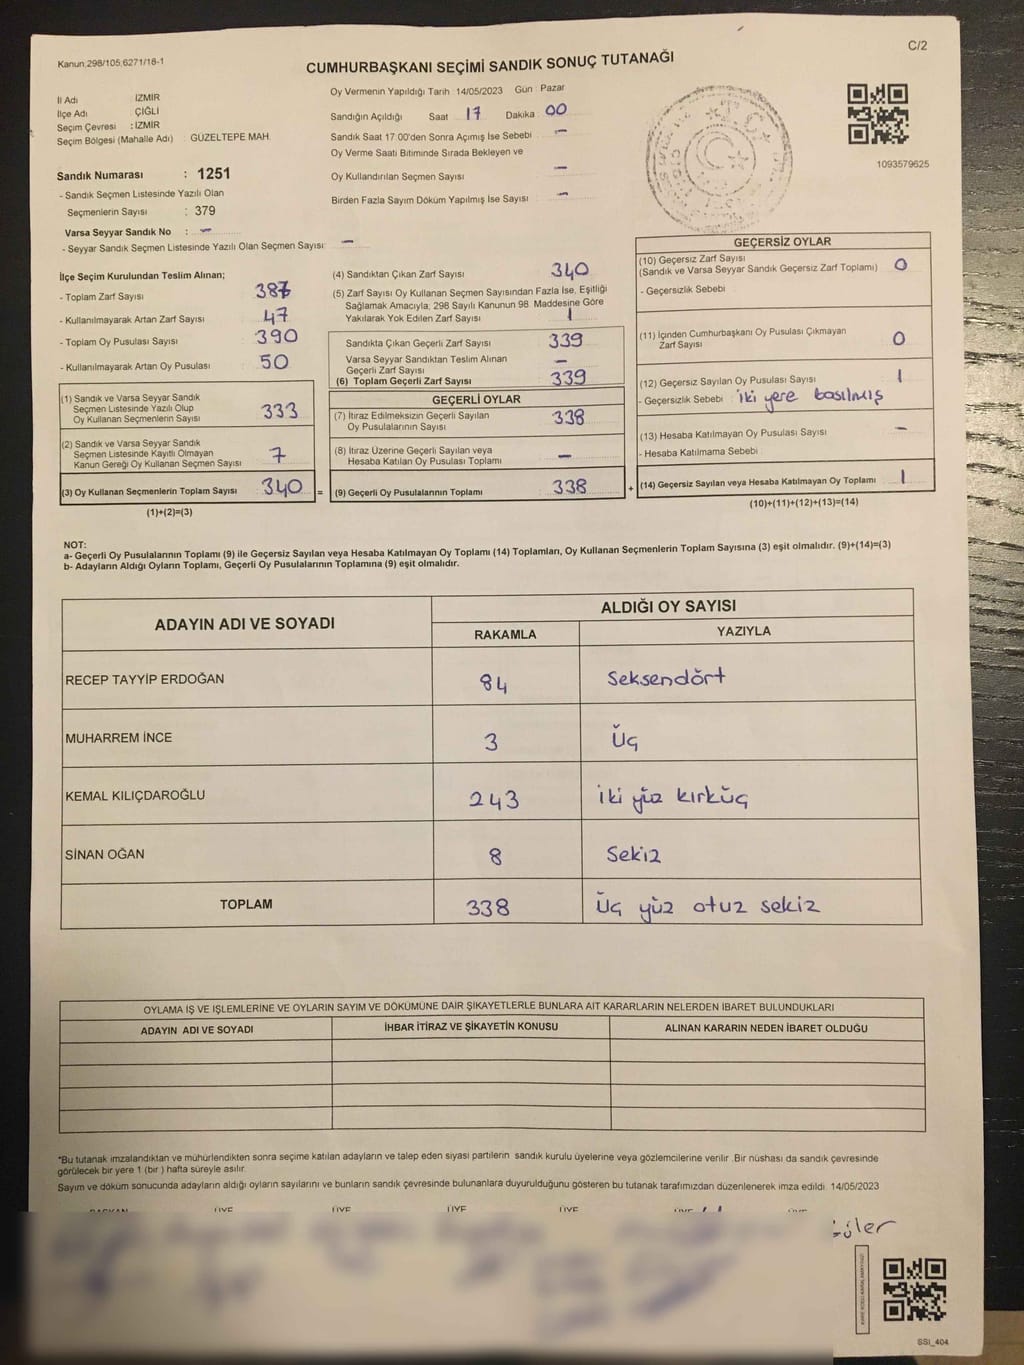 C/2
Kanun 298/105,6271/18-1
CUMHURBAŞKANI SEÇİMİ SANDIK SONUÇ TUTANAĞI
İl Adı : İZMİR
İlçe Adı : ÇİĞLİ
Seçim Çevresi : İZMİR
Seçim Bölgesi (Mahalle Adı) : GÜZELTEPE MAH.
Sandık Numarası : 1251
- Sandık Seçmen Listesinde Yazılı Olan
Seçmenlerin Sayısı : 379
Varsa Seyyar Sandık No : -
- Seyyar Sandık Seçmen Listesinde Yazılı Olan Seçmen Sayısı: -
Oy Vermenin Yapıldığı Tarih : 14/05/2023 Gün : Pazar
Sandığın Açıldığı Saat : 17 Dakika : 00
Sandık Saat 17:00'den Sonra Açımış İse Sebebi : -
Oy Verme Saati Bitiminde Sırada Bekleyen ve
Oy Kullandırılan Seçmen Sayısı : -
Birden Fazla Sayım Döküm Yapılmış İse Sayısı : -
T.C.
1093579625
İlçe Seçim Kurulundan Teslim Alınan;
- Toplam Zarf Sayısı : 387
- Kullanılmayarak Artan Zarf Sayısı : 47
- Toplam Oy Pusulası Sayısı : 390
- Kullanılmayarak Artan Oy Pusulası : 50
(1) Sandık ve Varsa Seyyar Sandık
Seçmen Listesinde Yazılı Olup
Oy Kullanan Seçmenlerin Sayısı : 333
(2) Sandık ve Varsa Seyyar Sandık
Seçmen Listesinde Kayıtlı Olmayan
Kanun Gereği Oy Kullanan Seçmen Sayısı : 7
(3) Oy Kullanan Seçmenlerin Toplam Sayısı : 340 =
(1)+(2)=(3)
(4) Sandıktan Çıkan Zarf Sayısı : 340
(5) Zarf Sayısı Oy Kullanan Seçmen Sayısından Fazla İse, Eşitliği
Sağlamak Amacıyla, 298 Sayılı Kanunun 98. Maddesine Göre
Yakılarak Yok Edilen Zarf Sayısı : 1
Sandıkta Çıkan Geçerli Zarf Sayısı : 339
Varsa Seyyar Sandıktan Teslim Alınan
Geçerli Zarf Sayısı : -
(6) Toplam Geçerli Zarf Sayısı : 339
GEÇERLİ OYLAR
(7) İtiraz Edilmeksizin Geçerli Sayılan
Oy Pusulalarının Sayısı : 338
(8) İtiraz Üzerine Geçerli Sayılan veya
Hesaba Katılan Oy Pusulası Toplamı : -
(9) Geçerli Oy Pusulalarının Toplamı : 338 +
GEÇERSİZ OYLAR
(10) Geçersiz Zarf Sayısı
(Sandık ve Varsa Seyyar Sandık Geçersiz Zarf Toplamı) : 0
- Geçersizlik Sebebi
(11) İçinden Cumhurbaşkanı Oy Pusulası Çıkmayan
Zarf Sayısı : 0
(12) Geçersiz Sayılan Oy Pusulası Sayısı : 1
- Geçersizlik Sebebi : iki yere basılmış
(13) Hesaba Katılmayan Oy Pusulası Sayısı : -
- Hesaba Katılmama Sebebi
(14) Geçersiz Sayılan veya Hesaba Katılmayan Oy Toplamı : 1
(10)+(11)+(12)+(13)=(14)
NOT:
a- Geçerli Oy Pusulalarının Toplamı (9) ile Geçersiz Sayılan veya Hesaba Katılmayan Oy Toplamı (14) Toplamları, Oy Kullanan Seçmenlerin Toplam Sayısına (3) eşit olmalıdır. (9)+(14)=(3)
b- Adayların Aldığı Oyların Toplamı, Geçerli Oy Pusulalarının Toplamına (9) eşit olmalıdır.
ADAYIN ADI VE SOYADI ALDIĞI OY SAYISI
RAKAMLA YAZIYLA
RECEP TAYYİP ERDOĞAN 84 Seksendört
MUHARREM İNCE 3 Üç
KEMAL KILIÇDAROĞLU 243 iki yüz kırküç
SİNAN OĞAN 8 Sekiz
TOPLAM 338 Üç yüz otuz sekiz
OYLAMA İŞ VE İŞLEMLERİNE VE OYLARIN SAYIM VE DÖKÜMÜNE DAİR ŞİKAYETLERLE BUNLARA AİT KARARLARIN NELERDEN İBARET BULUNDUKLARI
ADAYIN ADI VE SOYADI İHBAR İTİRAZ VE ŞİKAYETİN KONUSU ALINAN KARARIN NEDEN İBARET OLDUĞU
*Bu tutanak imzalandıktan ve mühürlendikten sonra seçime katılan adayların ve talep eden siyasi partilerin sandık kurulu üyelerine veya gözlemcilerine verilir. Bir nüshası da sandık çevresinde
görülecek bir yere 1 (bir ) hafta süreyle asılır.
Sayım ve döküm sonucunda adayların aldığı oyların sayılarını ve bunların sandık çevresinde bulunanlara duyurulduğunu gösteren bu tutanak tarafımızdan düzenlenerek imza edildi. 14/05/2023
BAŞKAN ÜYE ÜYE ÜYE ÜYE ÜYE ÜYE
SSI_404